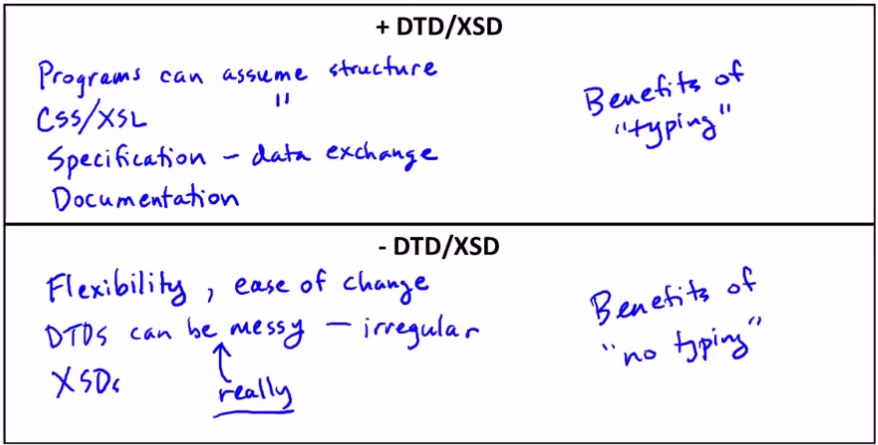 + DTD/XSD
Programs can assume structure
CSS/XSL "
Specification - data exchange
Documentation
Benefits of
"typing"
- DTD/XSD
Flexibility, ease of change
DTDs can be messy - irregular
XSDs
really
Benefits of
"no typing"